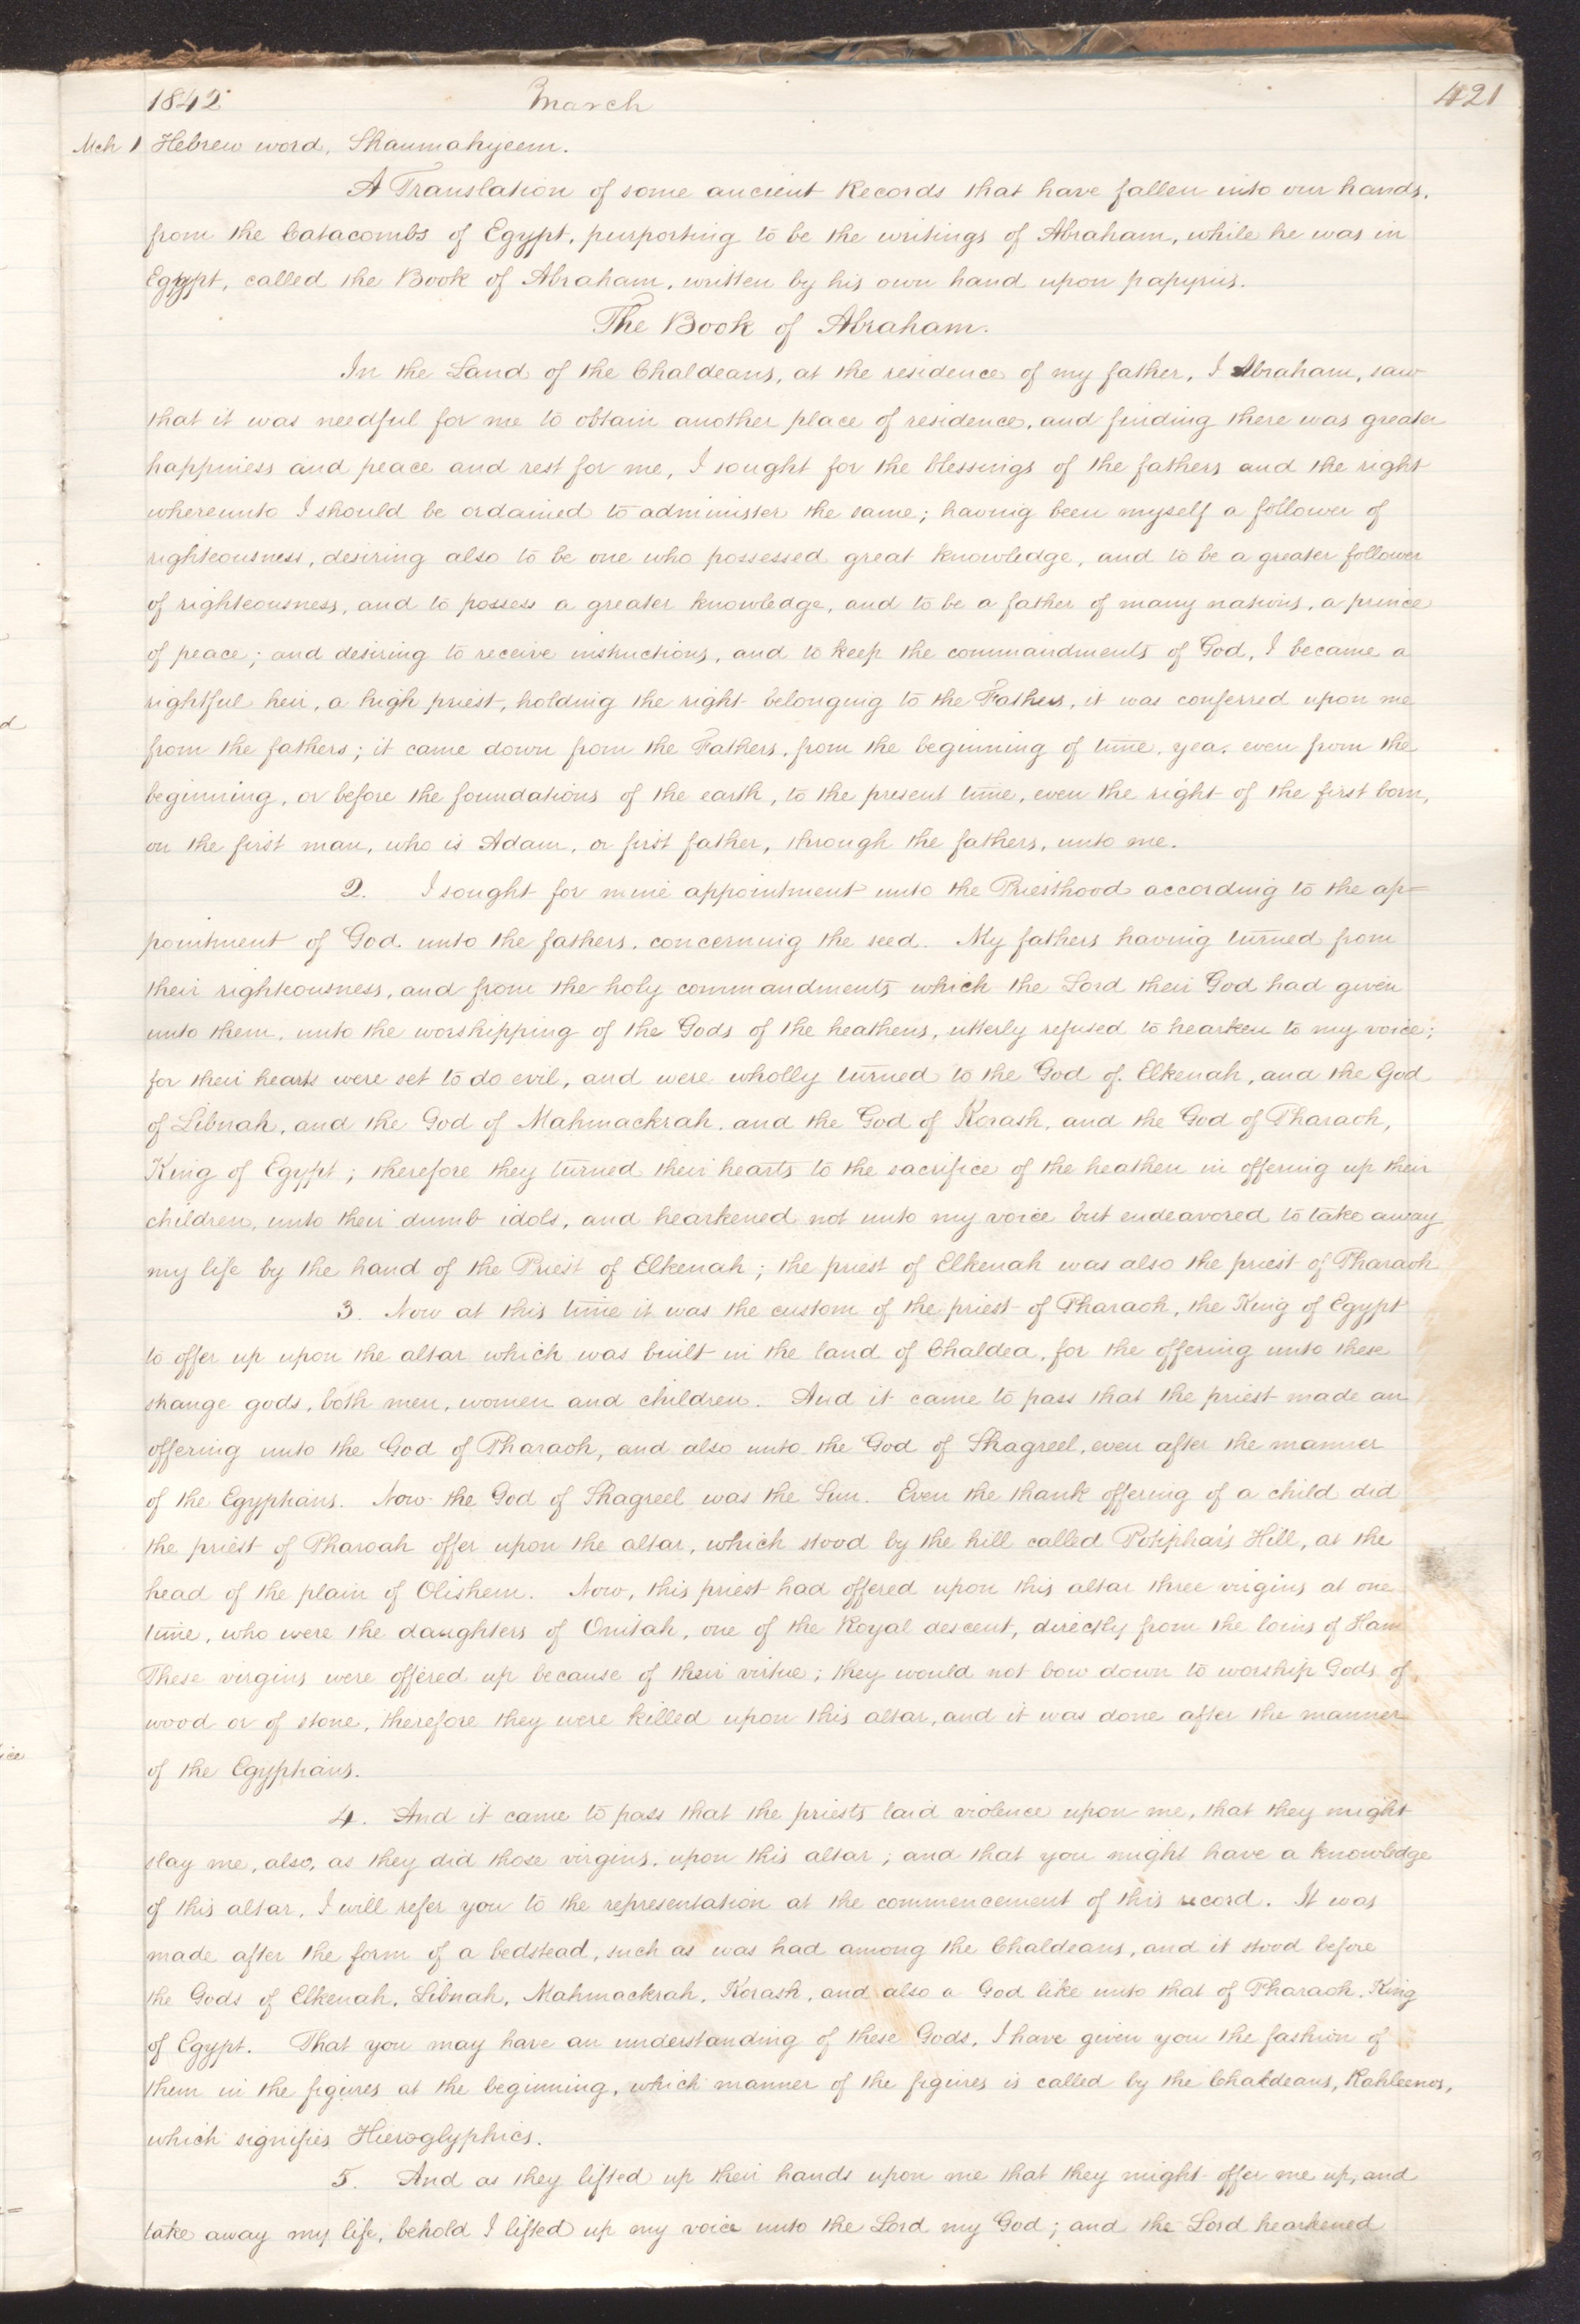 1842 March 421
Mch 1 Hebrew word, Shaumahyeem.
A Translation of some ancient Records that have fallen into our hands,
from the Catacombs of Egypt, purporting to be the writings of Abraham, while he was in
Egypt, called the Book of Abraham, written by his own hand upon papyrus.
The Book of Abraham.
In the Land of the Chaldeans, at the residence of my father, I Abraham, saw
that it was needful for me to obtain another place of residence, and finding there was greater
happiness and peace and rest for me, I sought for the blessings of the fathers and the right
whereunto I should be ordained to administer the same; having been myself a follower of
righteousness, desiring also to be one who possessed great knowledge, and to be a greater follower
of righteousness, and to possess a greater knowledge, and to be a father of many nations, a prince
of peace; and desiring to receive instructions, and to keep the commandments of God, I became a
rightful heir, a high priest, holding the right belonging to the Fathers, it was conferred upon me
from the fathers; it came down from the Fathers, from the beginning of time, yea, even from the
beginning, or before the foundations of the earth, to the present time, even the right of the first born,
on the first man, who is Adam, or first father, through the fathers, unto me.
2. I sought for mine appointment unto the Priesthood according to the ap=
pointment of God. unto the fathers, concerning the seed. My fathers having turned from
their righteousness, and from the holy commandments which the Lord their God had given
unto them, unto the worshipping of the Gods of the heathens, utterly refused to hearken to my voice;
for their hearts were set to do evil, and were wholly turned to the God of Elkenah, and the God
of Libnah, and the God of Mahmackrah, and the God of Korash, and the God of Pharaoh,
King of Egypt; therefore they turned their hearts to the sacrifice of the heathen in offering up their
children, unto their dumb idols, and hearkened not unto my voice but endeavored to take away
my life by the hand of the Priest of Elkenah; the priest of Elkenah was also the priest of Pharaoh
3. Now at this time it was the custom of the priest of Pharaoh, the King of Egypt
to offer up upon the altar which was built in the land of Chaldea, for the offering unto these
strange gods, both men, women and children. And it came to pass that the priest made an
offering unto the God of Pharaoh, and also unto the God of Shagreel, even after the manner
of the Egyptians. Now the God of Shagreel was the Sun. Even the thank offering of a child did
the priest of Pharoah offer upon the altar, which stood by the hill called Potiphar's Hill, at the
head of the plain of Olishem. Now, this priest had offered upon this altar three virgins at one
time, who were the daughters of Onitah, one of the Royal descent, directly from the loins of Ham
These virgins were offered up because of their virtue; they would not bow down to worship Gods of
wood or of stone, therefore they were killed upon this altar, and it was done after the manner
of the Egyptians.
4. And it came to pass that the priests laid violence upon me, that they might
slay me, also, as they did those virgins, upon this altar; and that you might have a knowledge
of this altar, I will refer you to the representation at the commencement of this record. It was
made after the form of a bedstead, such as was had among the Chaldeans, and it stood before
the Gods of Elkenah, Libnah, Mahmackrah, Korash, and also a God like unto that of Pharaoh, King
of Egypt. That you may have an understanding of these Gods, I have given you the fashion of
them in the figures at the beginning, which manner of the figures is called by the Chaldeans, Kahleenos,
which signifies Hieroglyphics.
5. And as they lifted up their hands upon me that they might offer me up, and
take away my life, behold I lifted up my voice unto the Lord my God; and the Lord hearkened